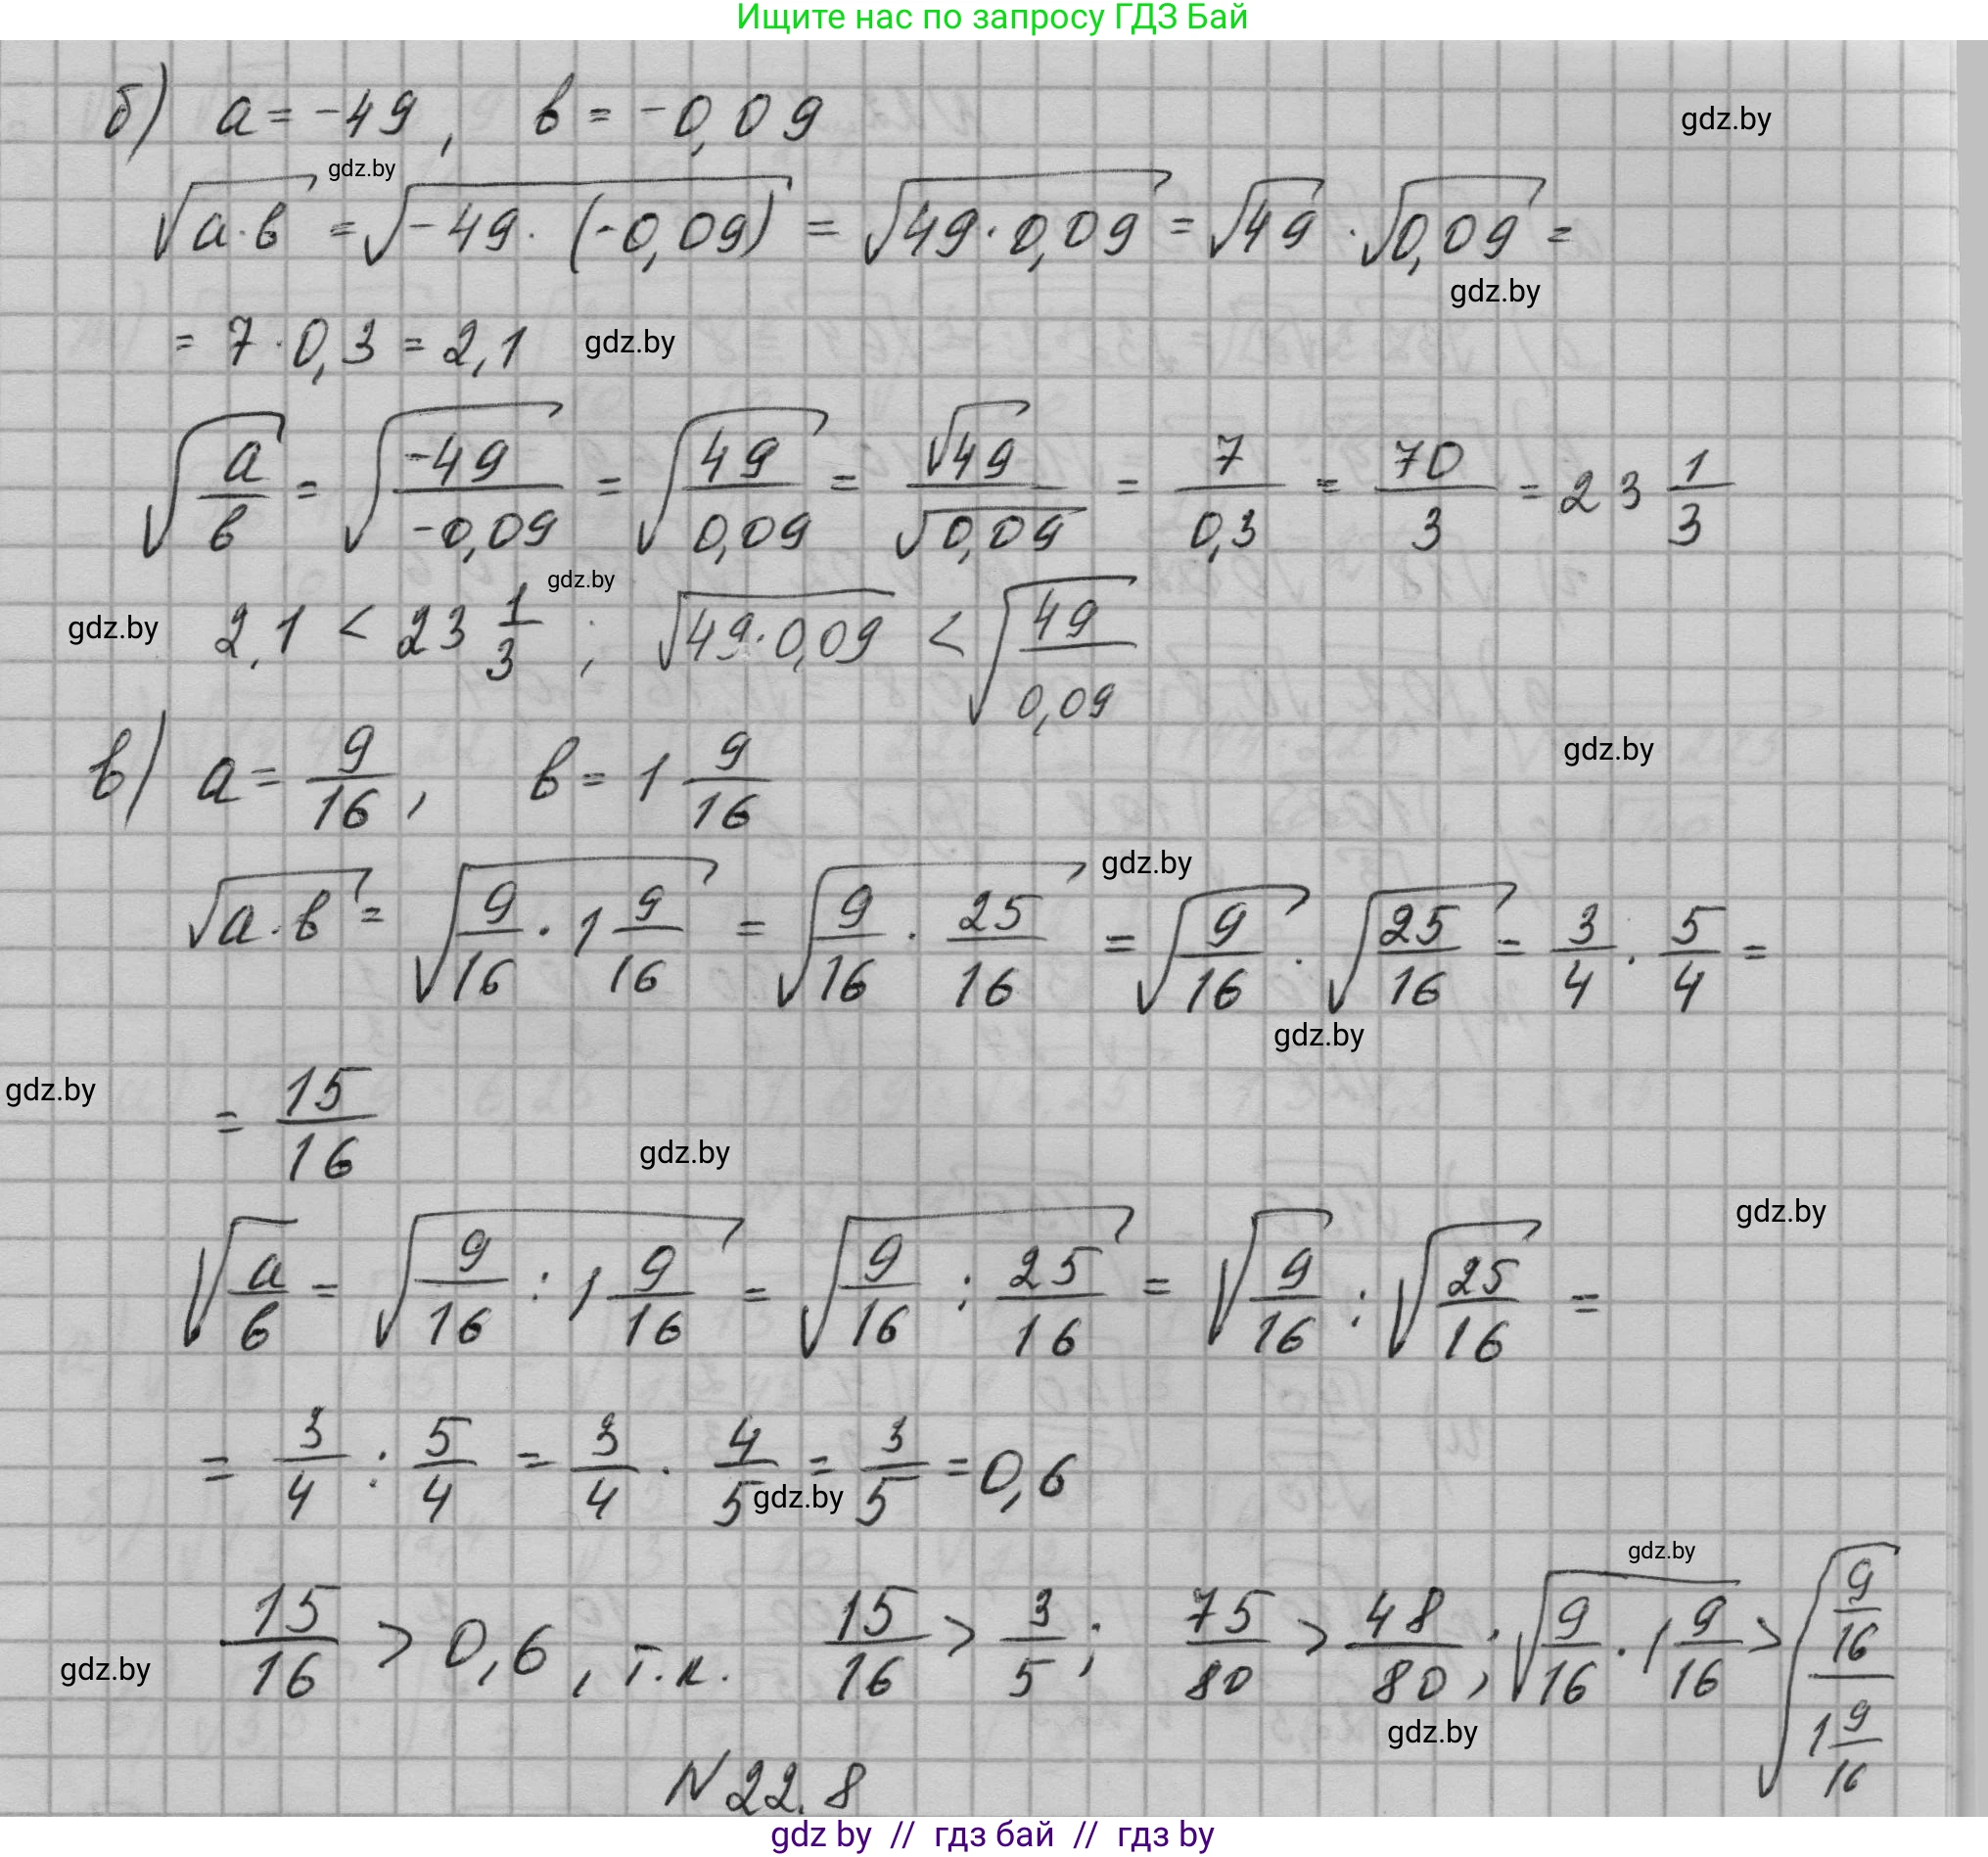 Ищите нас по запросу ГДЗ Бай
б) a = -49, в = -0,09
gdz.by
gdz.by
√(a·в) = √(-49·(-0,09)) = √(49·0,09) = √49 · √0,09 =
gdz.by
= 7·0,3 = 2,1
gdz.by
√(a/в) = √(-49/-0,09) = √(49/0,09) = √49/√0,09 = 7/0,3 = 70/3 = 23 1/3
gdz.by
gdz.by
2,1 < 23 1/3 ; √(49·0,09) < √(49/0,09)
в) a = 9/16, в = 1 9/16
gdz.by
gdz.by
√(a·в) = √(9/16 · 1 9/16) = √(9/16 · 25/16) = √(9/16) · √(25/16) = 3/4 · 5/4 =
gdz.by
gdz.by
= 15/16
gdz.by
gdz.by
√(a/в) = √(9/16 : 1 9/16) = √(9/16 : 25/16) = √(9/16) : √(25/16) =
= 3/4 : 5/4 = 3/4 · 4/5 = 3/5 = 0,6
gdz.by
gdz.by
gdz.by
15/16 > 0,6, т.к. 15/16 > 3/5; 75/80 > 48/80; √(9/16 · 1 9/16) > √((9/16)/(1 9/16))
gdz.by
N 22.8
gdz by // гдз бай // гдз by